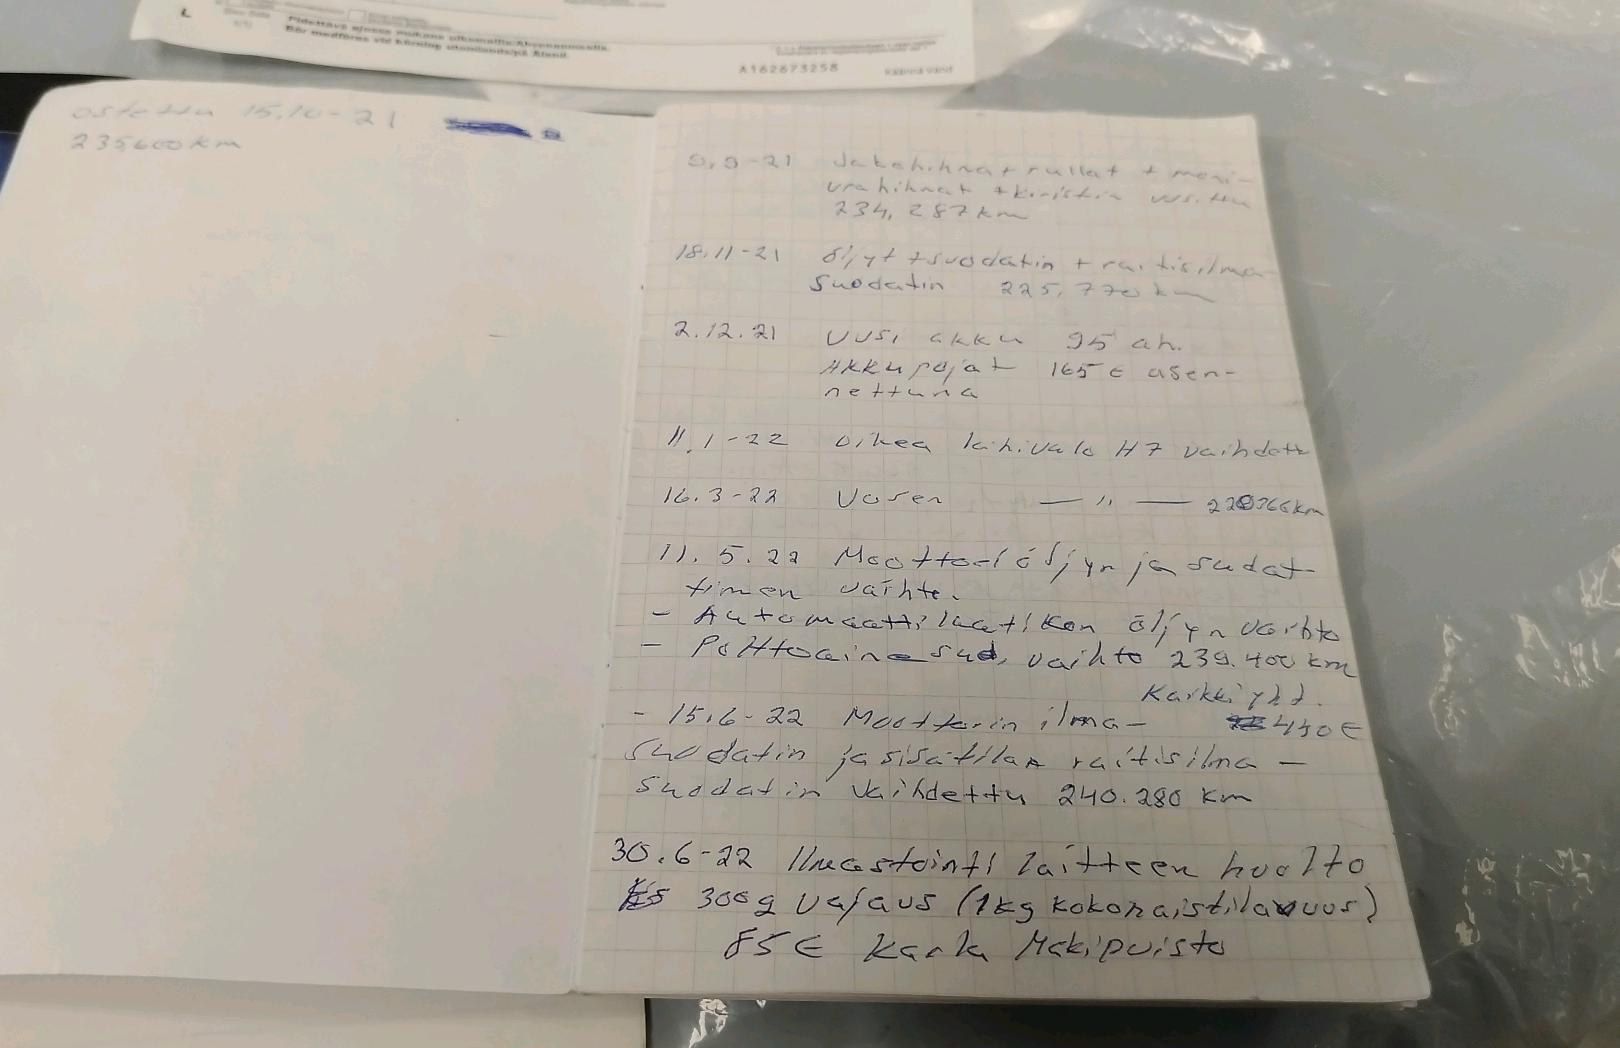 L
Pidettävä ajossa mukana ulkomailla/Ahvenanmaalla.
Bör medföras vid körning utomlands/på Åland.
A162673258
Käännä Vänd
ostettu 15.10-21
235,600 km
9.9-21 Jakohihna + rullat + moni-
urahihnat + kiristin uusittu
234,287 km
18.11-21 öljyt + suodatin + raitisilma
suodatin 225,770 km
2.12.21 Uusi akku 95 ah.
Akkupojat 165 € asen-
nettuna
11.1-22 oikea lähivalo H7 vaihdettu
16.3-22 Vasen — " — 366km
11.5.22 Moottoriöljyn ja sudat-
timen vaihto.
- Automaattilaatikon öljyn vaihto
- Polttoainesud. vaihto 239.400 km
Karkki yht.
- 15.6-22 Moottorin ilma- 440€
suodatin ja sisätilan raitisilma-
suodatin vaihdettu 240.280 km
30.6-22 Ilmastointi laitteen huolto
300g vajaus (1kg kokonaistilavuus)
85€ Mäkipuisto